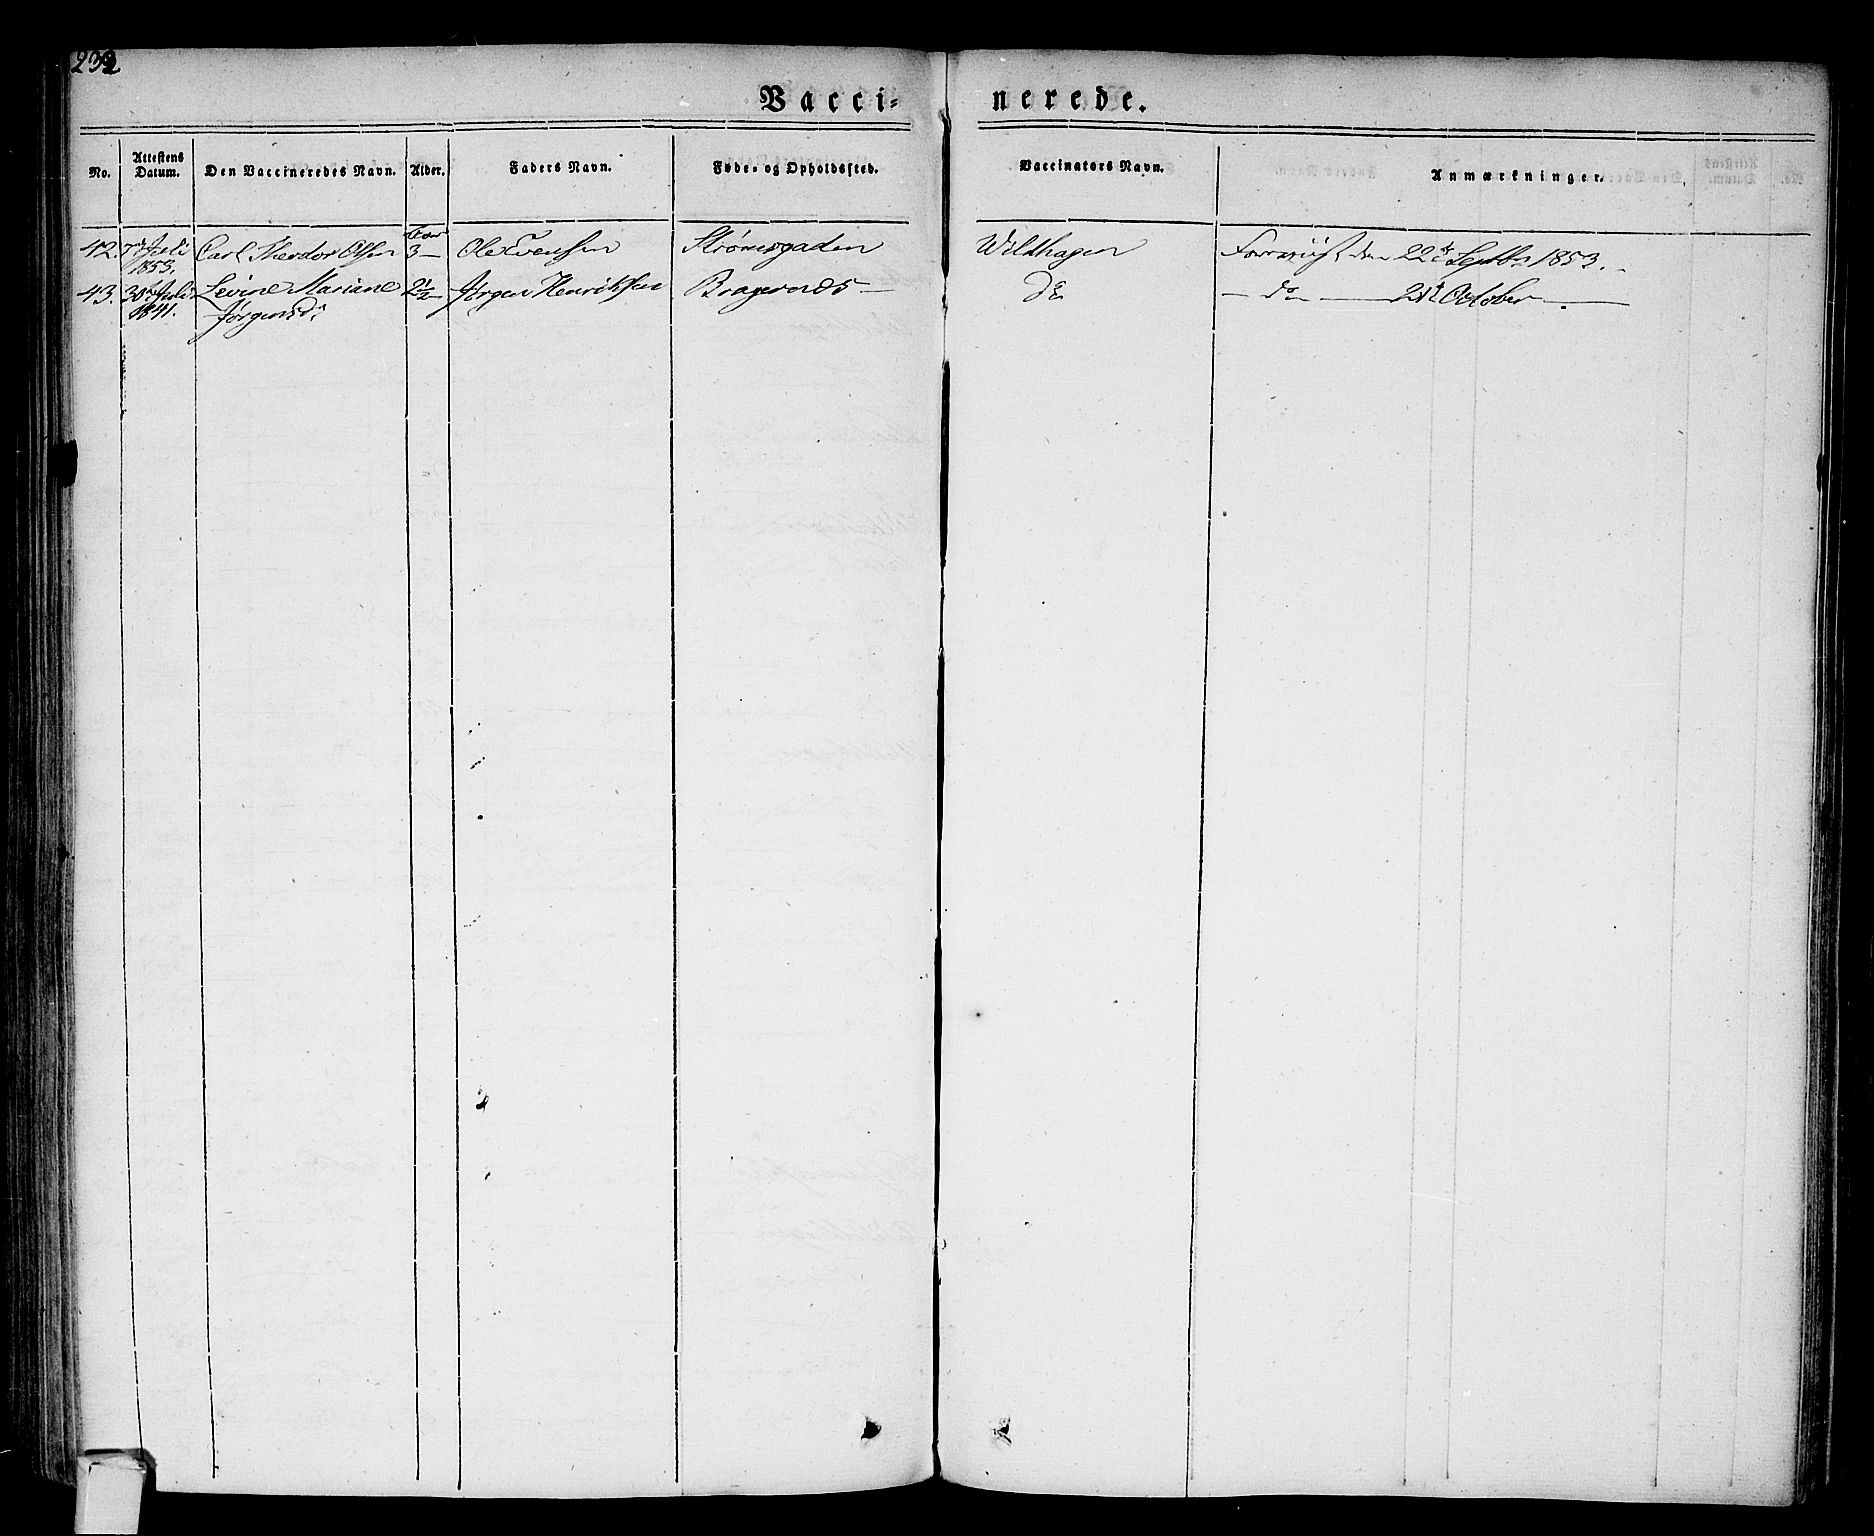 232
Vacci-
nerede.
No.
Attestens Datum.
Den Vaccineredes Navn.
Alder.
Faders Navn.
Føde- og Opholdssted.
Vaccinators Navn.
Anmærkninger.
42. 7de Juli Carl Theodor Olsen 3 — Ole Evensen Strømsgaden Wildhagen Foreviist den 22de Septbr 1853.
1853.
43. 30te Juli Levine Mariane 2½ Jørgen Henriksen Bragernæs — Do — do — 21de October —
1841. Jørgensdr